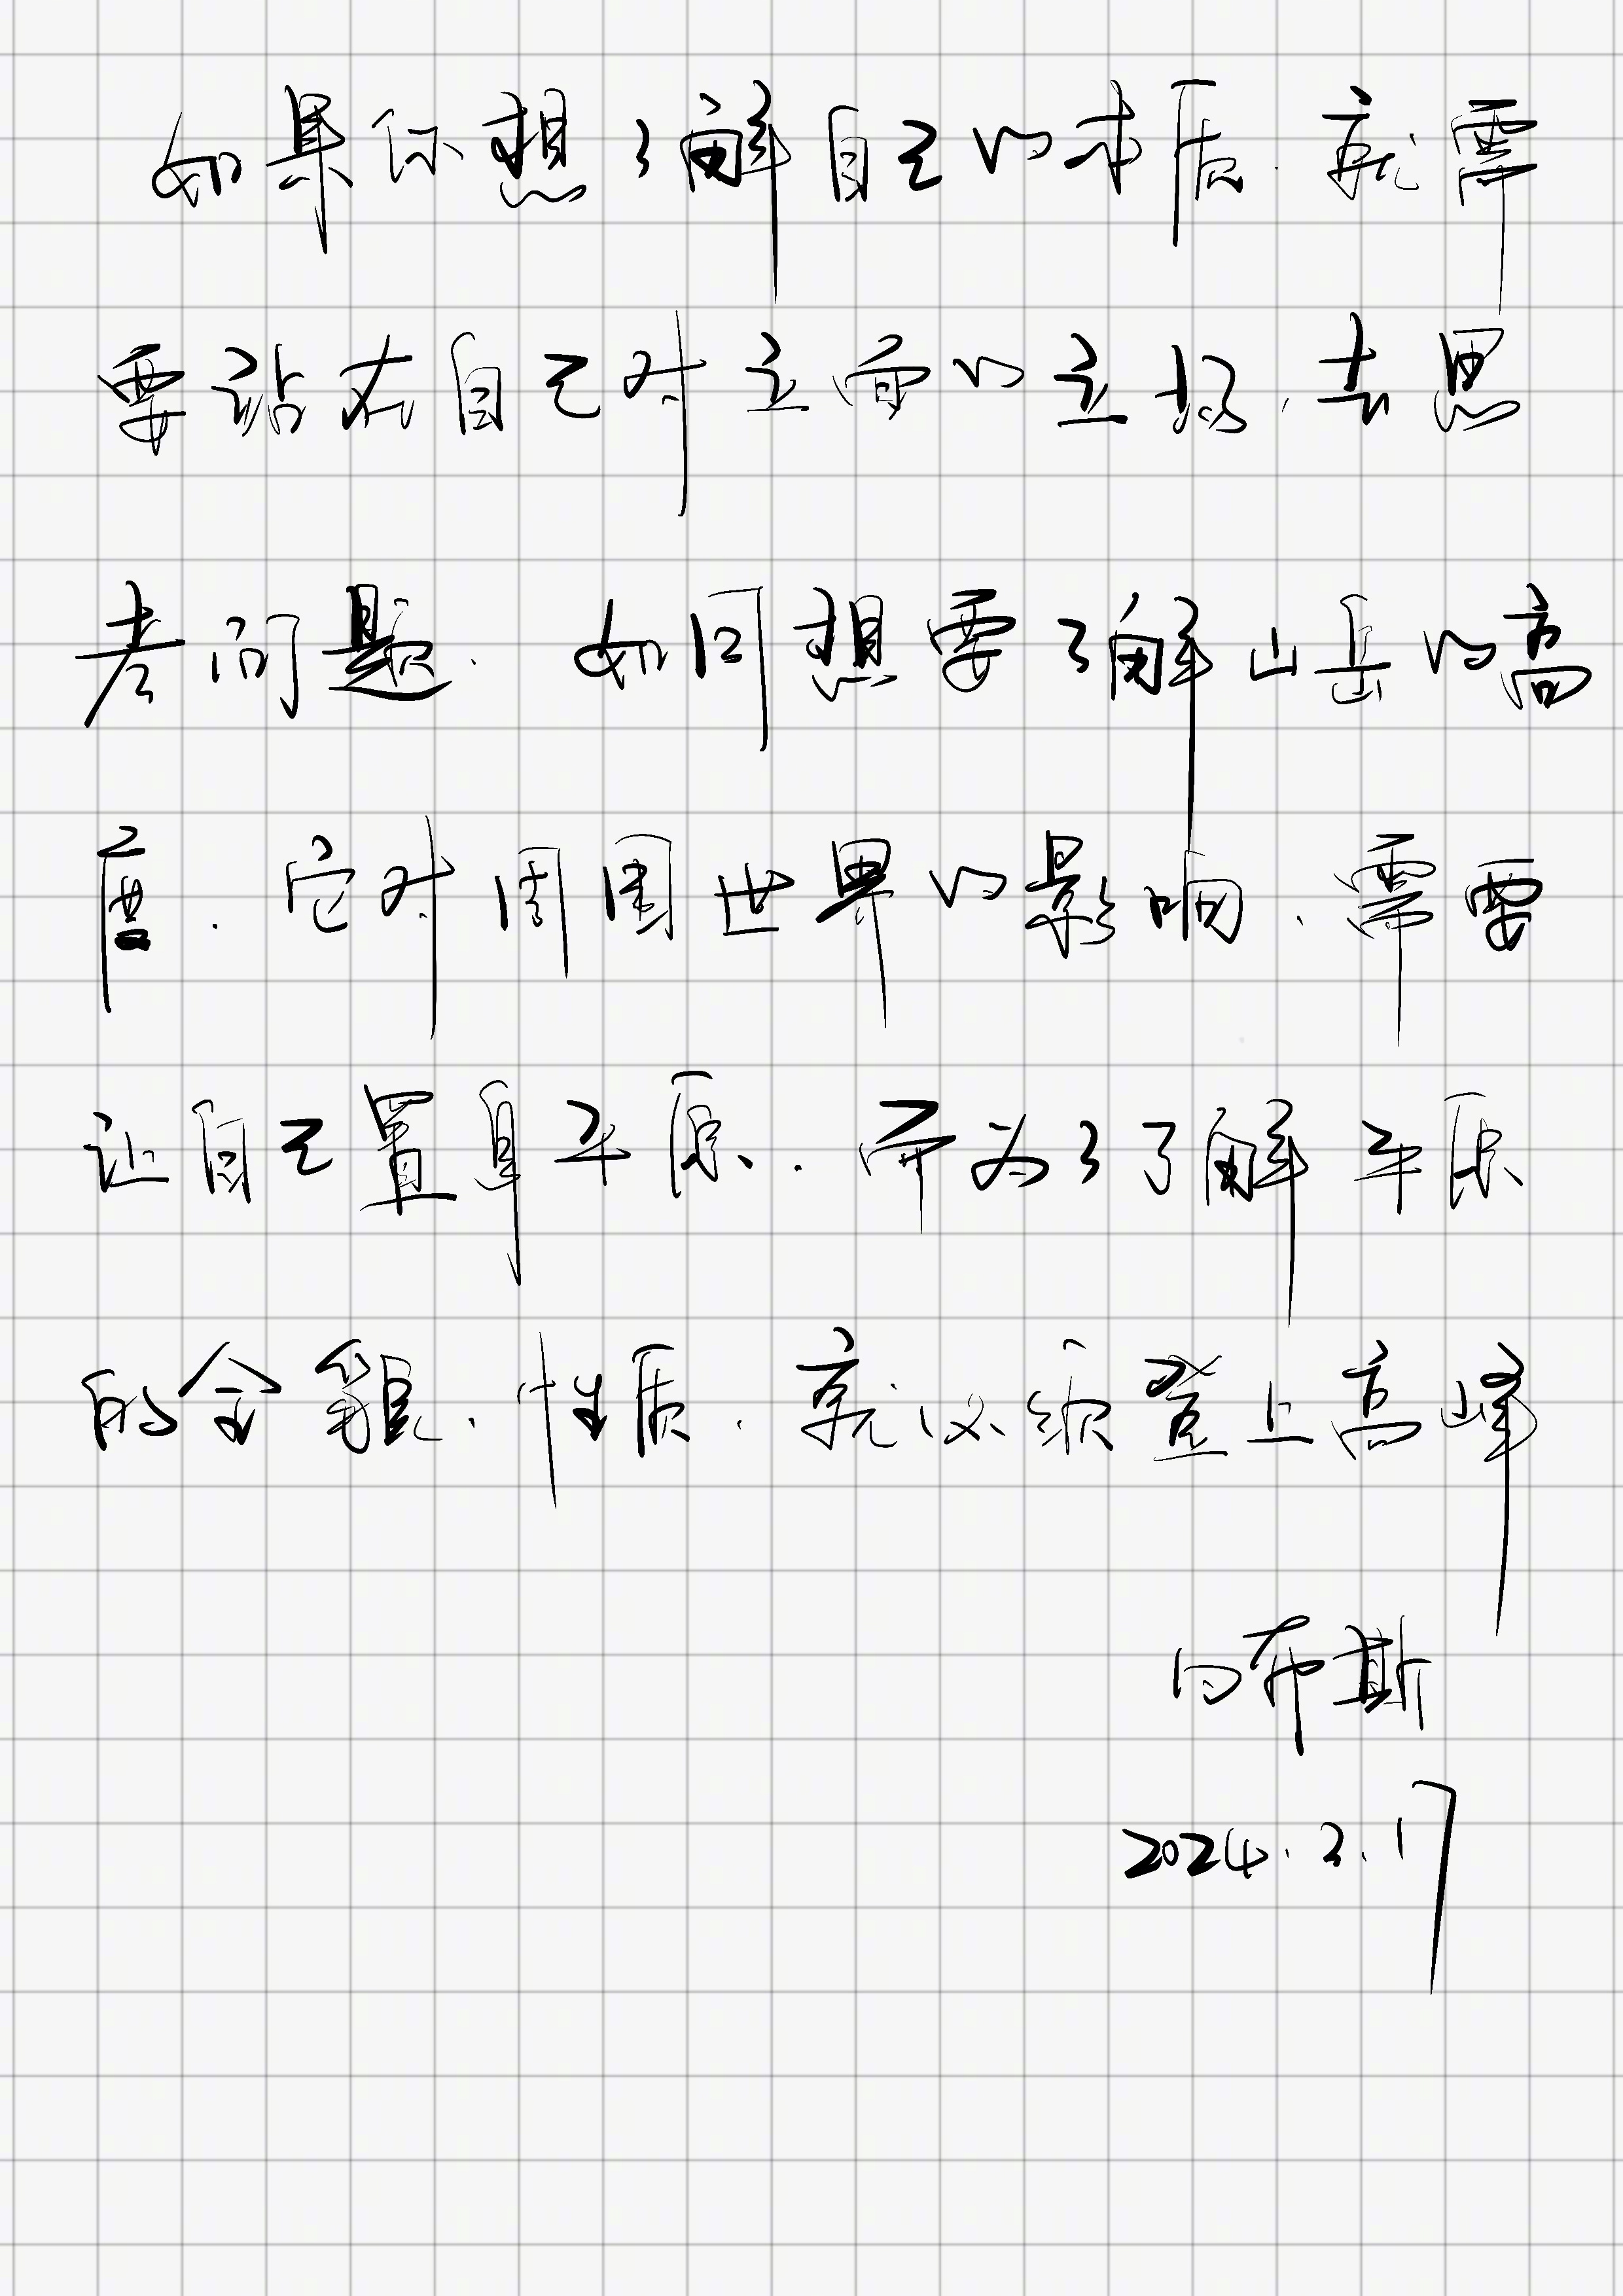 如果你想了解自己的本质.就需
要站在自己对立面的立场.去思
考问题.如同想要了解山岳的高
度.它对周围世界的影响.需要
让自己置身平原.而为了了解平原
的全貌.性质.就必须登上高峰
布斯
2024.3.17